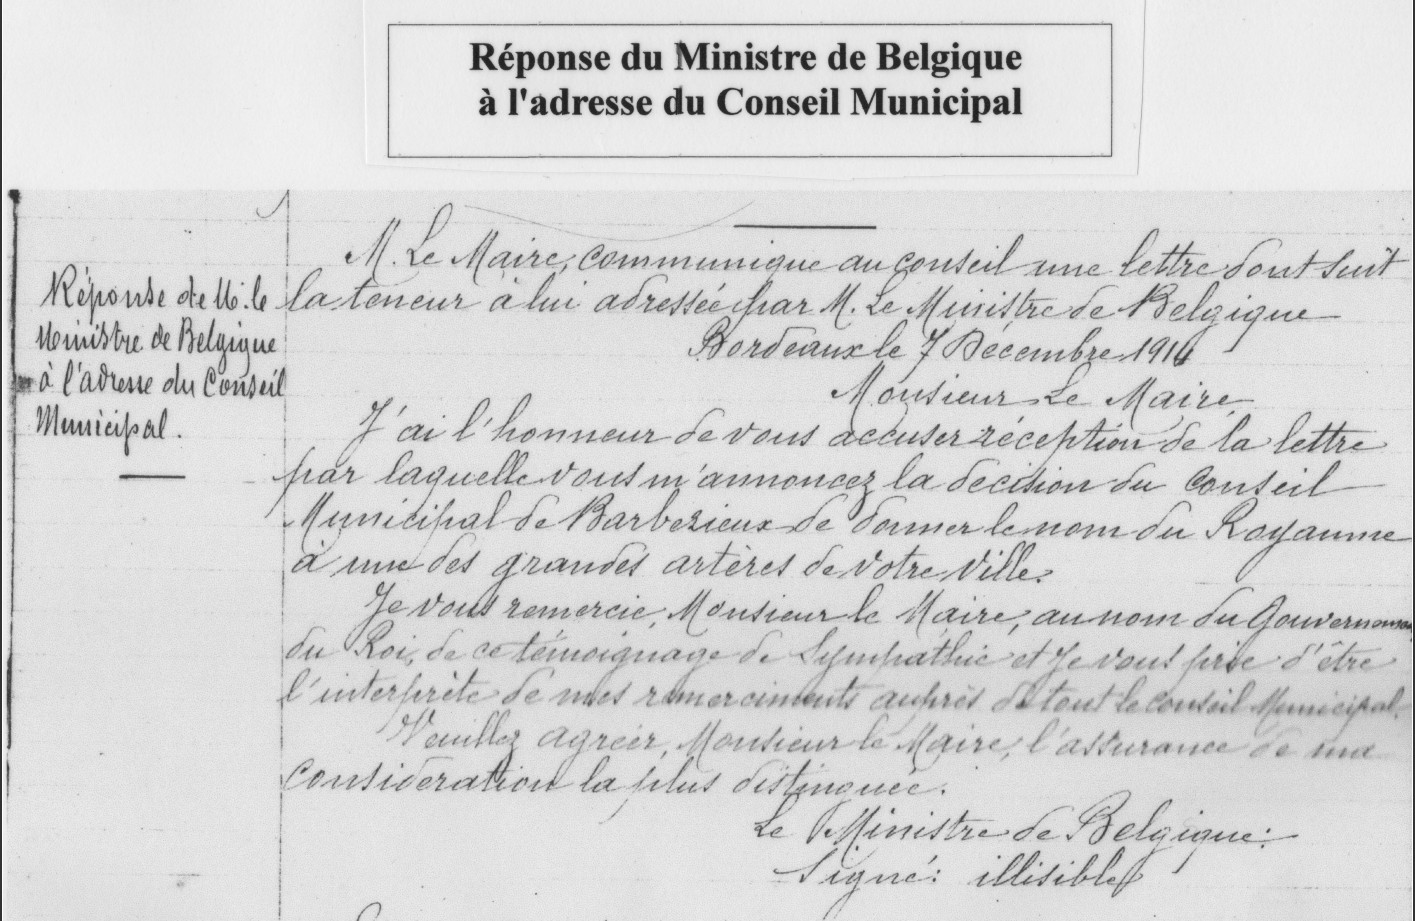 Réponse du Ministre de Belgique
à l'adresse du Conseil Municipal
M. Le Maire, communique au conseil une lettre dont suit
la teneur à lui adressée par M. Le Ministre de Belgique
Bordeaux le 7 Décembre 1914
Monsieur Le Maire,
J'ai l'honneur de vous accuser réception de la lettre
par laquelle vous m'annoncez la decision du conseil
Municipal de Barbezieux de donner le nom du Royaume
à une des grandes artères de votre ville.
Je vous remercie, Monsieur le Maire, au nom du Gouvernement
du Roi, de ce témoignage de Sympathie et je vous prie d'être
l'interprète de mes remerciments auprès de tout le conseil Municipal.
Veuillez agréer, Monsieur le Maire, l'assurance de ma
consideration la plus distinguée.
Le Ministre de Belgique:
Signé: illisible
Réponse de M. le
Ministre de Belgique
à l'adresse du Conseil
Municipal.